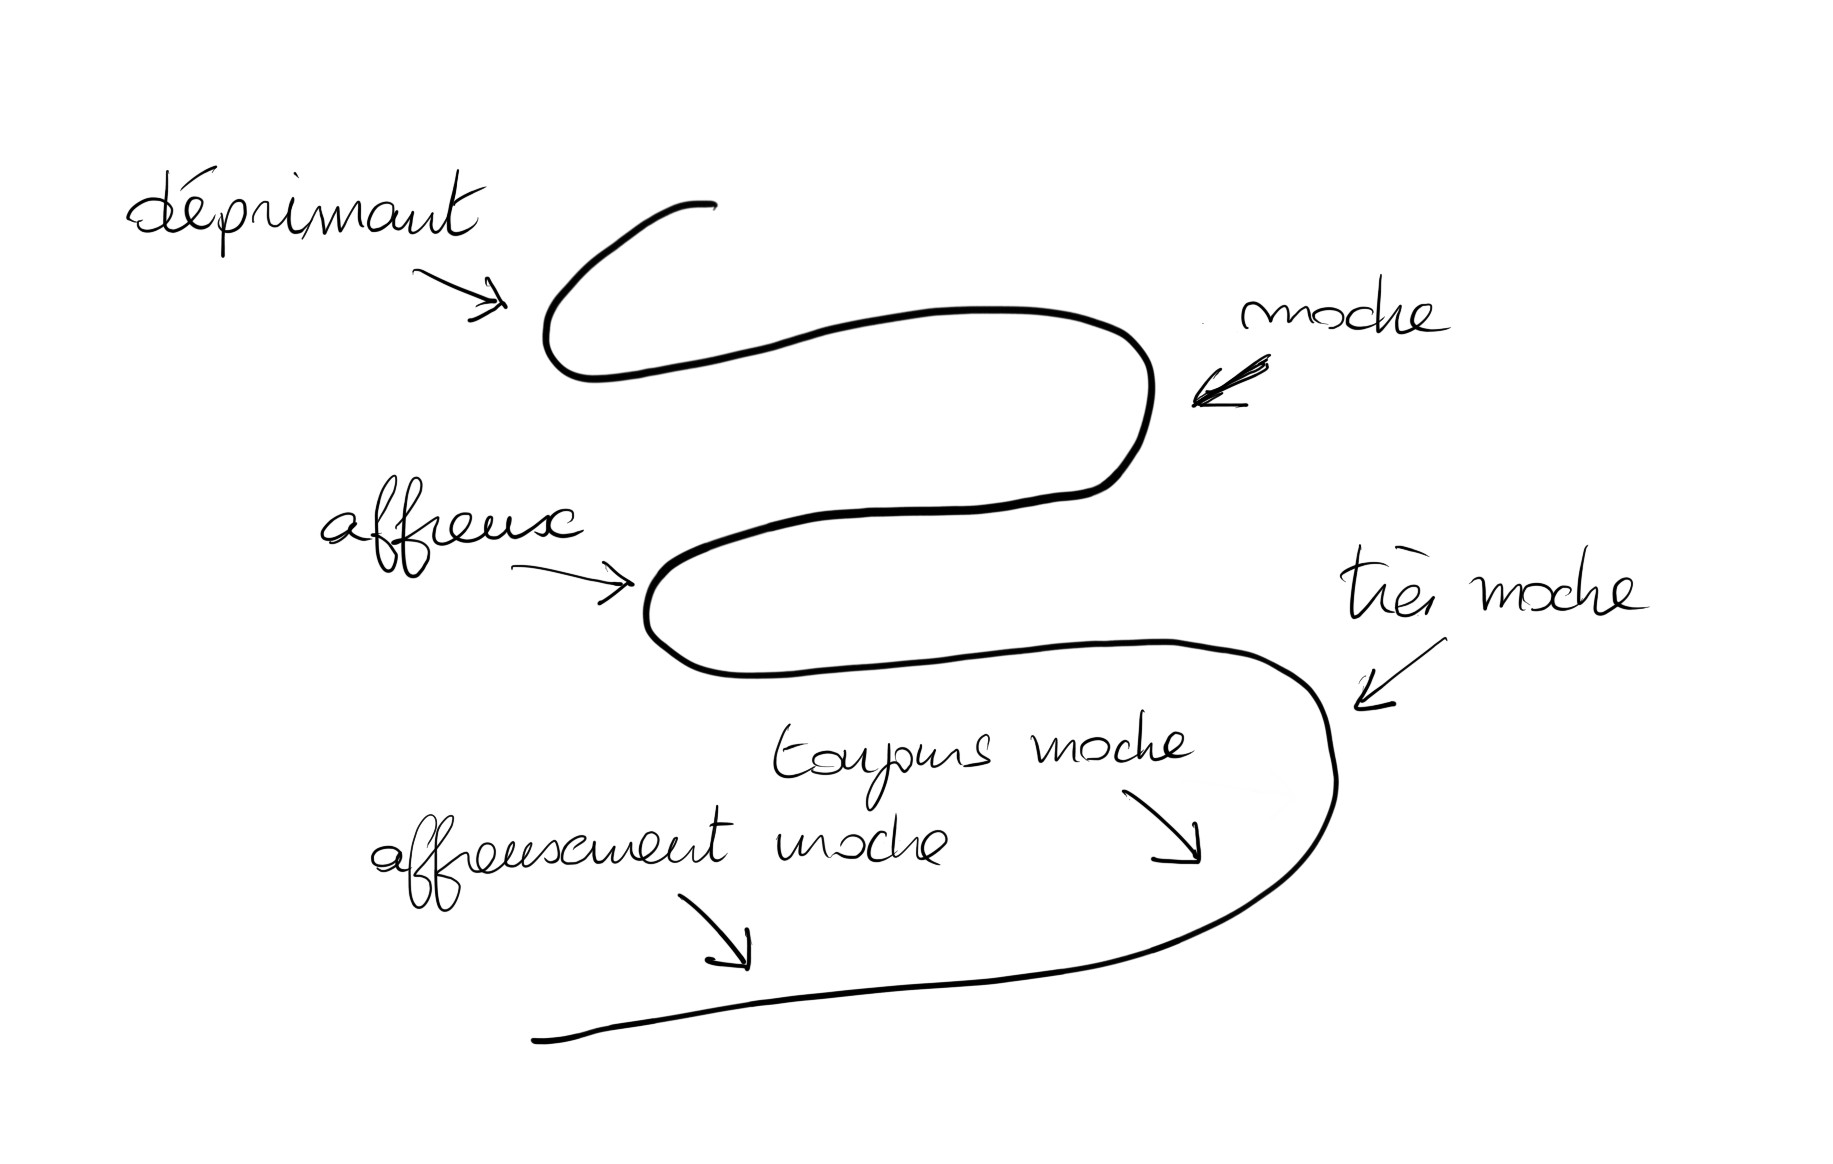 déprimant
moche
affreux
très moche
toujours moche
affreusement moche